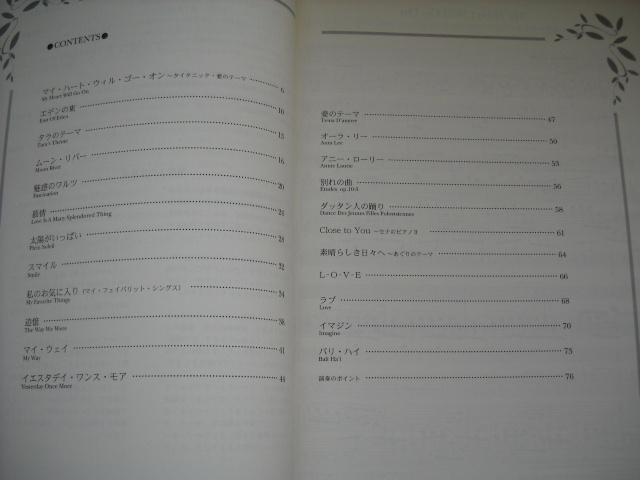 ●CONTENTS●
マイ・ハート・ウィル・ゴー・オン ～タイタニック・愛のテーマ 6
My Heart Will Go On
エデンの東 10
East Of Eden
タラのテーマ 13
Tara's Theme
ムーン・リバー 16
Moon River
魅惑のワルツ 20
Fascination
慕情 24
Love Is A Many Splendored Thing
太陽がいっぱい 28
Plein Soleil
スマイル 32
Smile
私のお気に入り (マイ・フェイバリット・シングス) 34
My Favorite Things
追憶 38
The Way We Were
マイ・ウェイ 41
My Way
イエスタデイ・ワンス・モア 44
Yesterday Once More
愛のテーマ 47
Tema D'amore
オーラ・リー 50
Aura Lee
アニー・ローリー 53
Annie Laurie
別れの曲 56
Etudes op.10-3
ダッタン人の踊り 58
Dance Des Jeunes Filles Polovtsiennes
Close to You ～セナのピアノⅡ 61
素晴らしき日々へ ～あぐりのテーマ 64
L-O-V-E 66
ラブ 68
Love
イマジン 70
Imagine
バリ・ハイ 73
Bali Ha'i
演奏のポイント 76